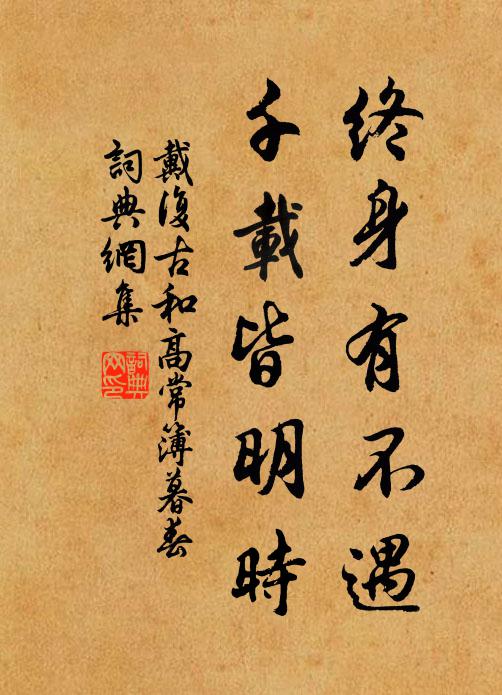 終身有不遇
千載皆明時
戴復古和高常簿暮春
詞典網集
詞典网印